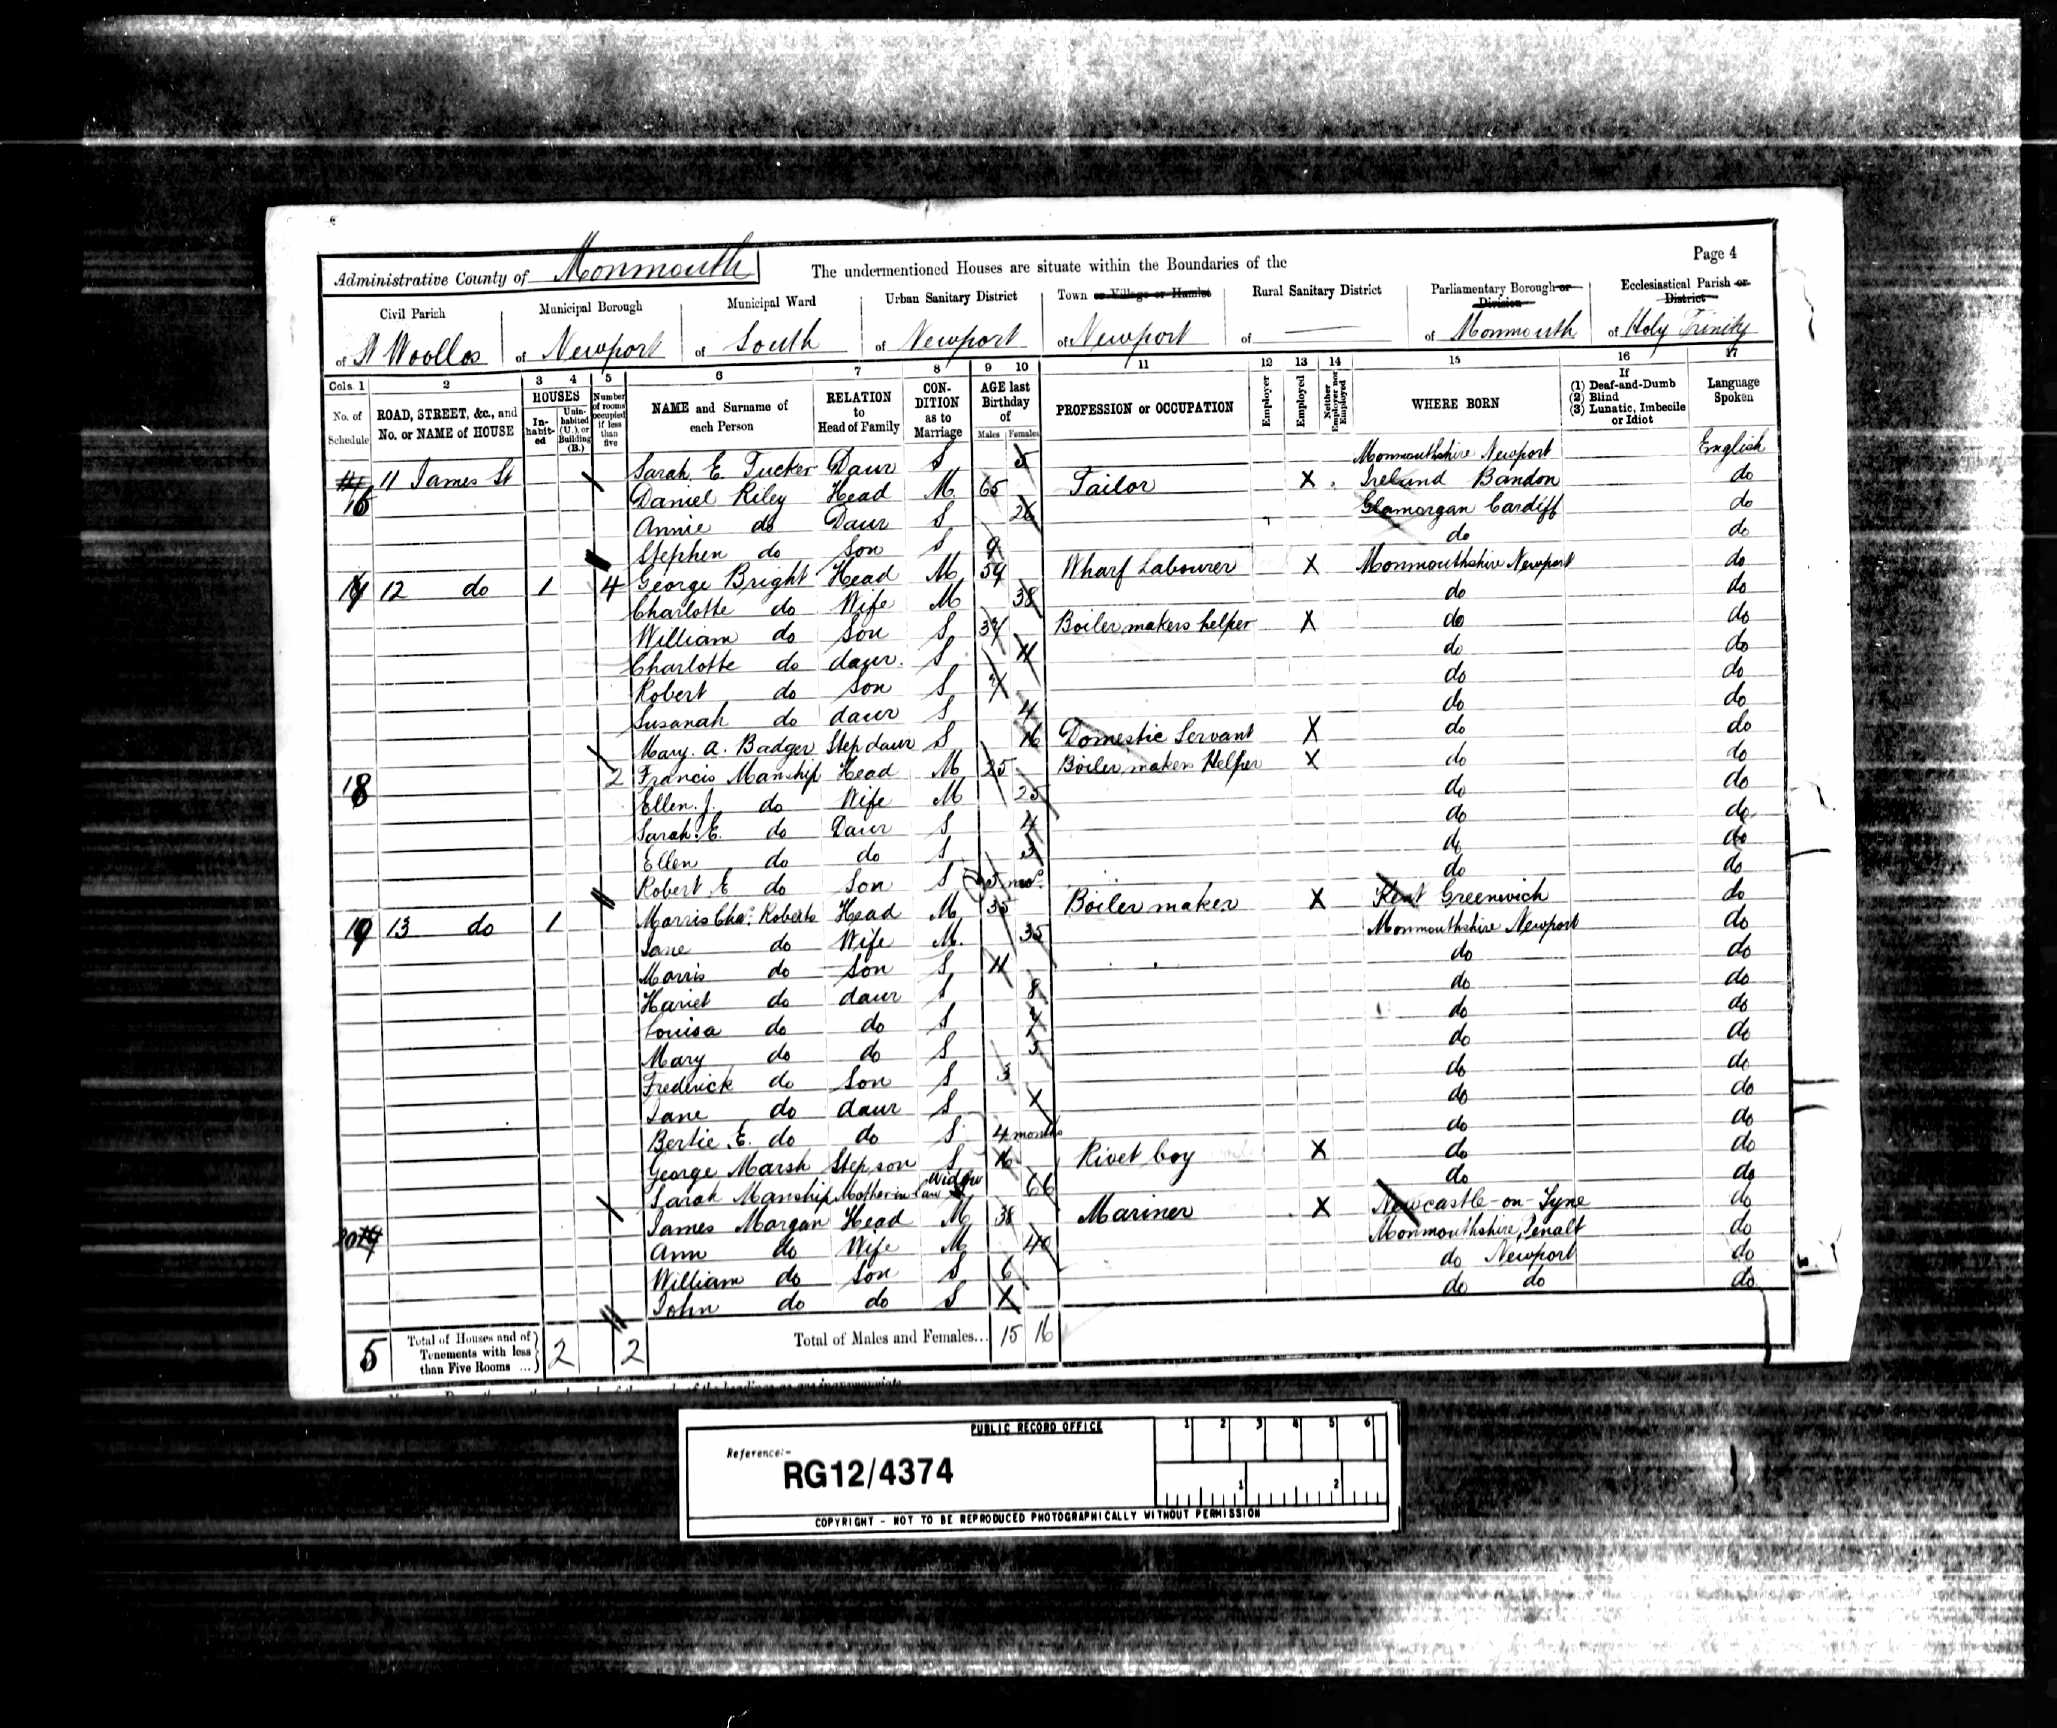 Page 4
Administrative County of Monmouth The undermentioned Houses are situate within the Boundaries of the
Civil Parish Municipal Borough Municipal Ward Urban Sanitary District Town or Village or Hamlet Rural Sanitary District Parliamentary Borough or Division Ecclesiastical Parish or District
of St Woollos of Newport of South of Newport of Newport of — of Monmouth of Holy Trinity
Cols. 1 2 3 4 5 6 7 8 9 10 11 12 13 14 15 16 17
No. of Schedule ROAD, STREET, &c., and No. or NAME of HOUSE HOUSES Inhabited Uninhabited (U.), or Building (B.) Number of rooms occupied if less than five NAME and Surname of each Person RELATION to Head of Family CONDITION as to Marriage AGE last Birthday of Males Females PROFESSION or OCCUPATION Employer Employed Neither Employer nor Employed WHERE BORN If (1) Deaf-and-Dumb (2) Blind (3) Lunatic, Imbecile or Idiot Language Spoken
11 James St Sarah E. Tucker Daur S 5 Monmouthshire Newport English
16 Daniel Riley Head M 65 Tailor X Ireland Bandon do
Annie do Daur S 26 Glamorgan Cardiff do
Stephen do Son S 9 do do
12 do 1 4 George Bright Head M Wharf Labourer X Monmouthshire Newport do
Charlotte do Wife M 38 do do
William do Son S Boiler makers helper X do do
Charlotte do daur. S 11 do do
Robert do Son S 7 do do
Susanah do daur S 4 do do
Mary. A. Badger Step daur S 16 Domestic Servant X do do
18 2 Francis Manship Head M 25 Boiler makers Helper X do do
Ellen. J. do Wife M 25 do do
Sarah. E. do Daur S 4 do do
Ellen do do S 3 do do
Robert E do Son S 5 mos. do do
19 13 do 1 Morris Chas. Roberts Head M 35 Boiler maker X Kent Greenwich do
Jane do Wife M. 35 Monmouthshire Newport do
Morris do Son S 11 do do
Hariet do daur S 8 do do
Louisa do do S 7 do do
Mary do do S 5 do do
Frederick do Son S 3 do do
Jane do daur S do do
Bertie E. do do S 4 months do do
George Marsh Stepson S 16 Rivet boy X do do
Sarah Manship Mother in law Widow 66 do do
20 James Morgan Head M 38 Mariner X Newcastle-on-Tyne do
Ann do Wife M 40 Monmouthshire, Penalt do
William do Son S 6 do Newport do
John do do S do do do
5 Total of Houses and of Tenements with less than Five Rooms ... 2 2 Total of Males and Females... 15 16
PUBLIC RECORD OFFICE
1 2 3 4 5 6
Reference:-
RG12/4374
1 2
COPYRIGHT - NOT TO BE REPRODUCED PHOTOGRAPHICALLY WITHOUT PERMISSION